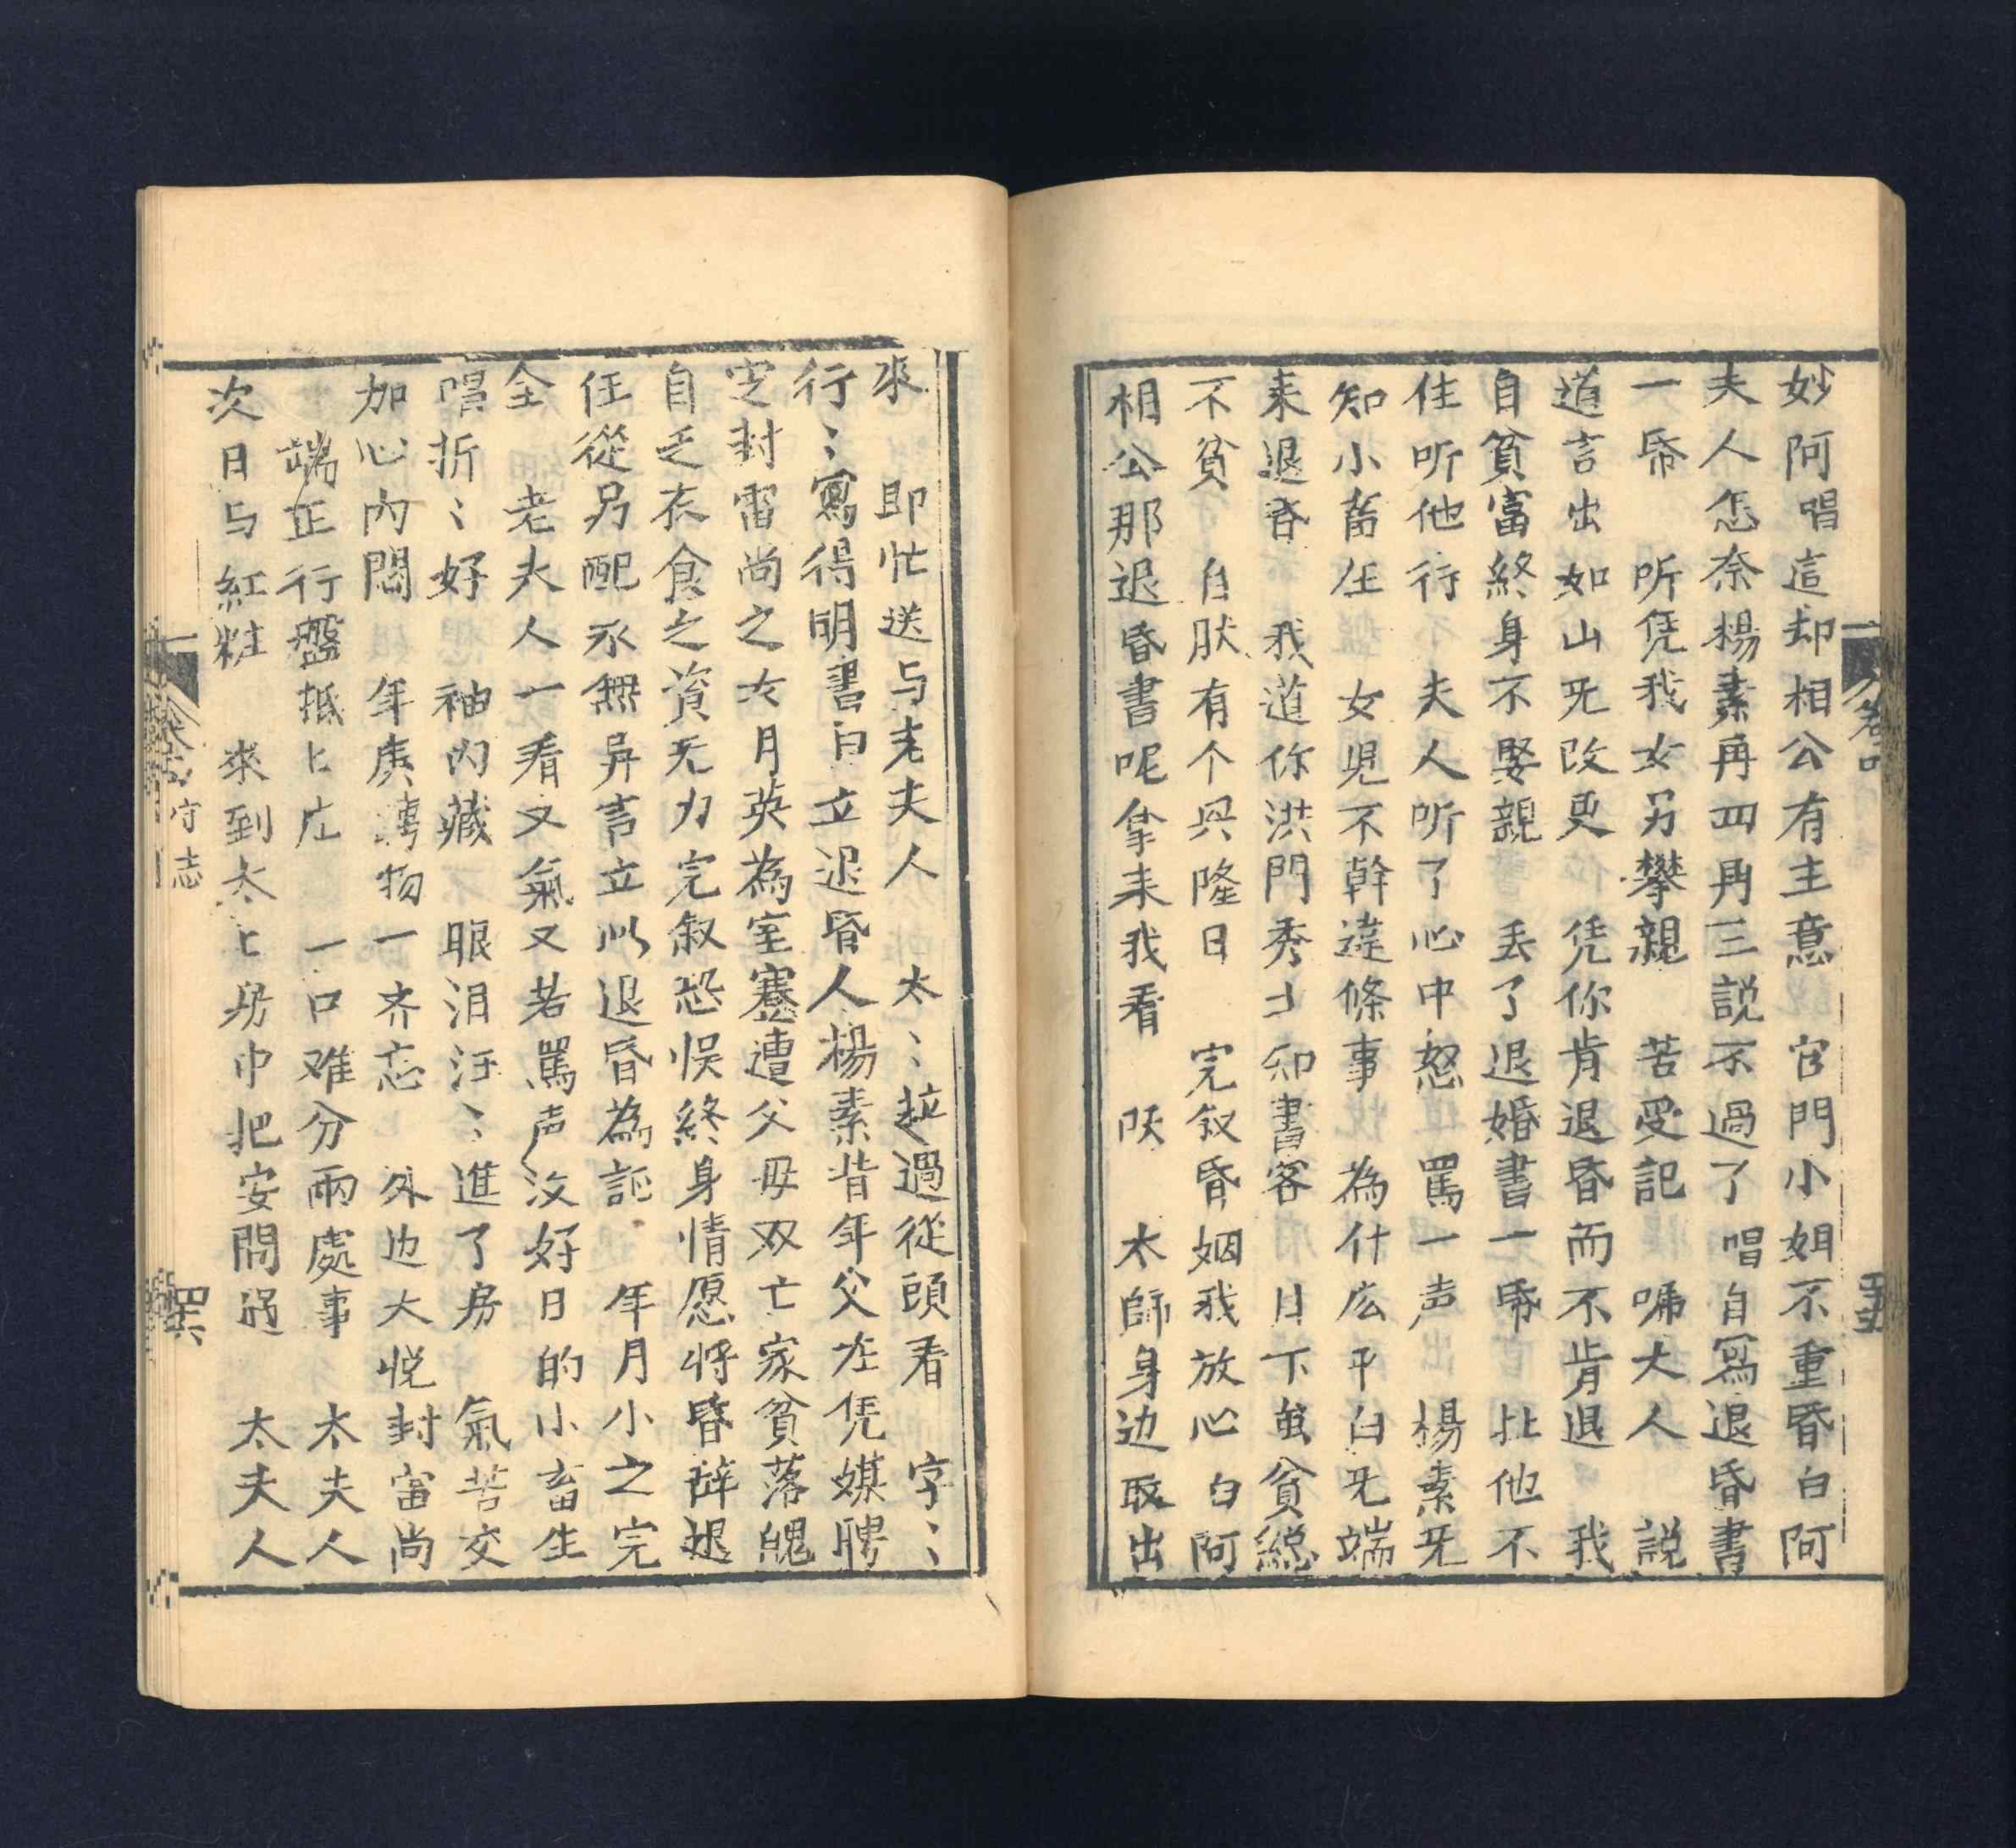 妙阿唱這却相公有主意　官門小姐不重昏白阿
夫人怎奈楊素再四再三説不過了唱自寫退昏書
一帋　听凭我女另攀親　苦受記　嘱大人　説
道言出如山旡改更　凭你肯退昏而不肯退　我
自貧富終身不娶親　丢了退婚書一帋　比他不
住听他行　夫人听了心中怒　罵一声　楊素旡
知小畜生　女児不幹違條事　為什広平白旡端
来退昏　我道你洪門秀士知書客　目下虽貧総
不貧　自肰有个兴隆日　完叙昏姻我放心　白阿
相公那退昏書呢拿来我看　阦　太師身边取出
來　即忙送与老夫人　太〻拉過從頭看　字〻
行〻寫得明書白立退昏人楊素昔年父在凭媒聘
定封雷尚之女月英為室蹇遭父毋双亡家貧落魄
自乏衣食之資无力完叙恐悮終身情愿将昏辞退
任從另配永無异言立此退昏為証　年月小之完
全　老夫人一看又氣又若罵声汝好日的小畜生
唱折〻好　袖内藏　眼泪汪〻進了房　氣苦交
加心内悶　年庚聘物一齐忘　外边大悦封雷尚
端正行盤抵上庄　一口难分兩處事　太夫人
次日与紅粧　來到太上房中把安問過　太夫人
守志